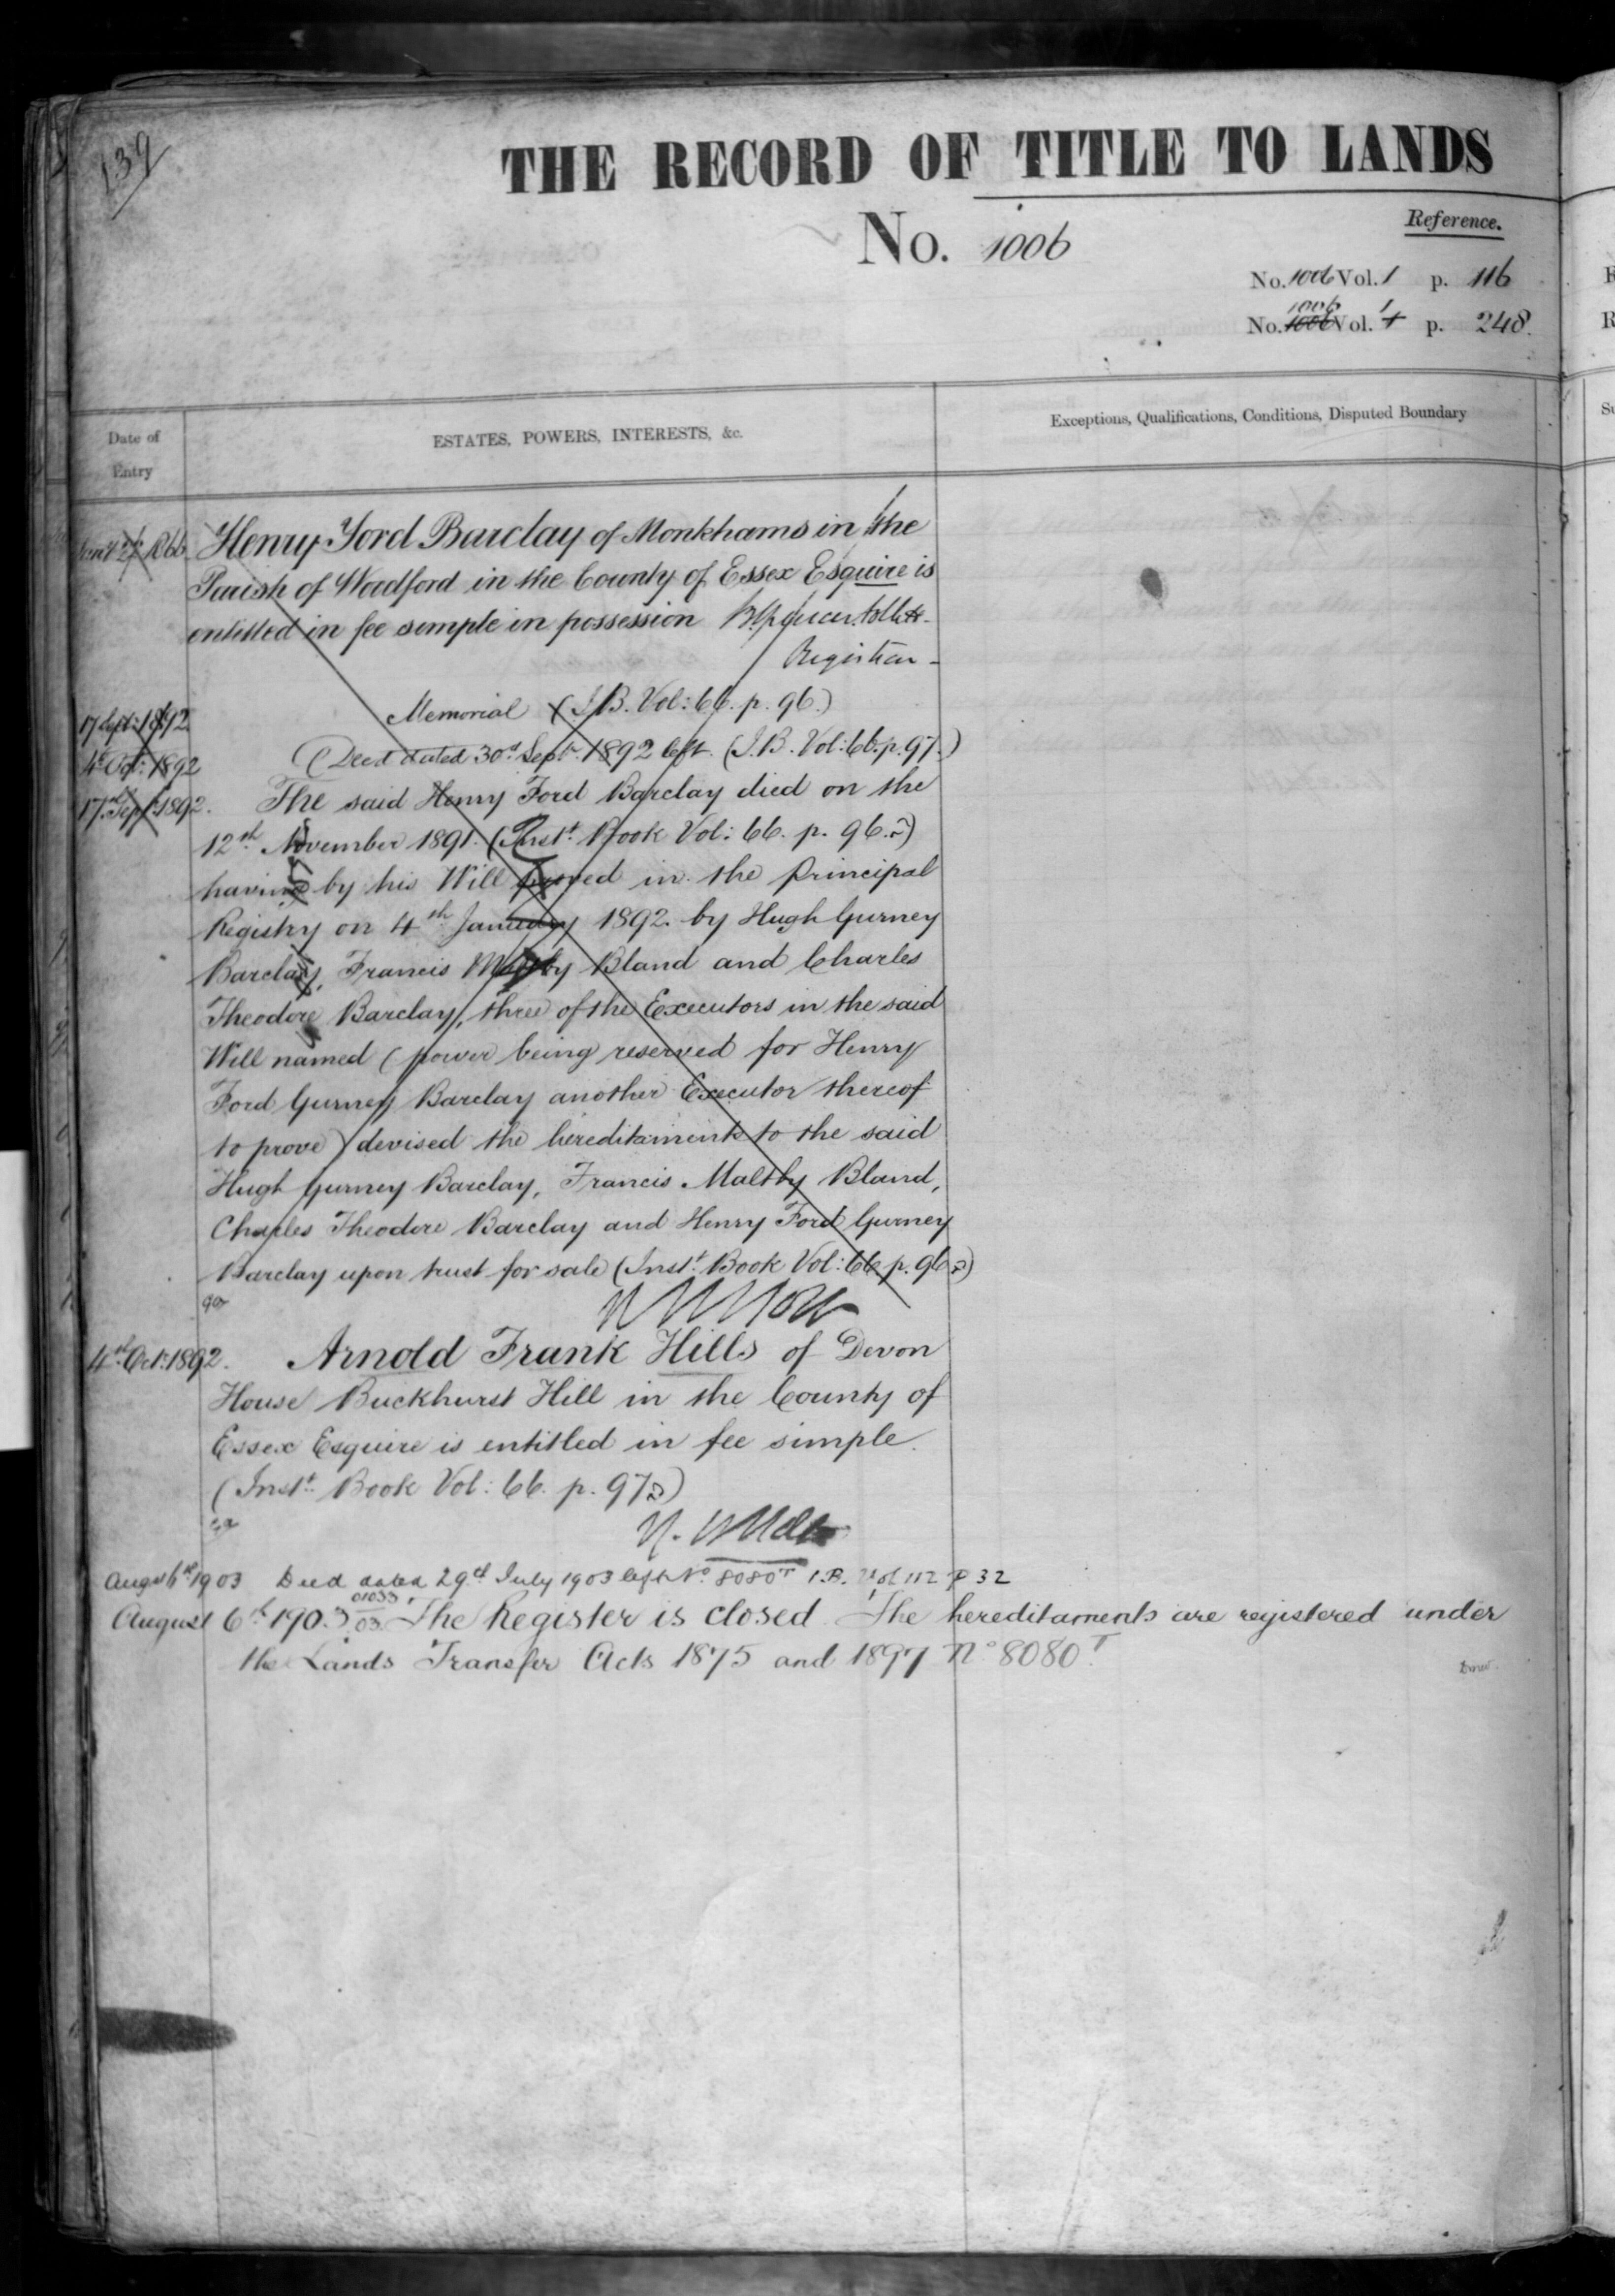 139
THE RECORD OF TITLE TO LANDS
No. 1006
Reference.
No. 1006 Vol. 1 p. 116
1006 1
No. 1006 Vol. 1 p. 248.
Date of Entry
ESTATES, POWERS, INTERESTS, &c.
Exceptions, Qualifications, Conditions, Disputed Boundary
1866 Henry Ford Barclay of Monkhams in the
Parish of Woodford in the County of Essex Esquire is
entitled in fee simple in possession
Registrar
17 Sept: 1892 Memorial (I.B. Vol: 66. p. 96.)
4th Oct: 1892 (Deed dated 30th Sept. 1892 left. (I.B. Vol: 66. p. 97.)
17th Sept. 1892. The said Henry Ford Barclay died on the
12th November 1891. (Inst. Book Vol: 66. p. 96.)
having by his Will proved in the Principal
Registry on 4th January 1892. by Hugh Gurney
Barclay, Francis Maltby Bland and Charles
Theodore Barclay, three of the Executors in the said
Will named (power being reserved for Henry
Ford Gurney Barclay another Executor thereof
to prove) devised the hereditaments to the said
Hugh Gurney Barclay, Francis Maltby Bland,
Charles Theodore Barclay and Henry Ford Gurney
Barclay upon trust for sale (Inst. Book Vol: 66 p. 96)
4th Oct: 1892. Arnold Frank Hills of Devon
House Buckhurst Hill in the County of
Essex Esquire is entitled in fee simple.
(Inst. Book Vol: 66. p. 97)
Augst 6th 1903 Deed dated 29th July 1903 left No. 8080T I.B. Vol 112 P 32
01033
August 6th 1903 03 The Register is closed. The hereditaments are registered under
the Lands Transfer Acts 1875 and 1897 No 8080T.